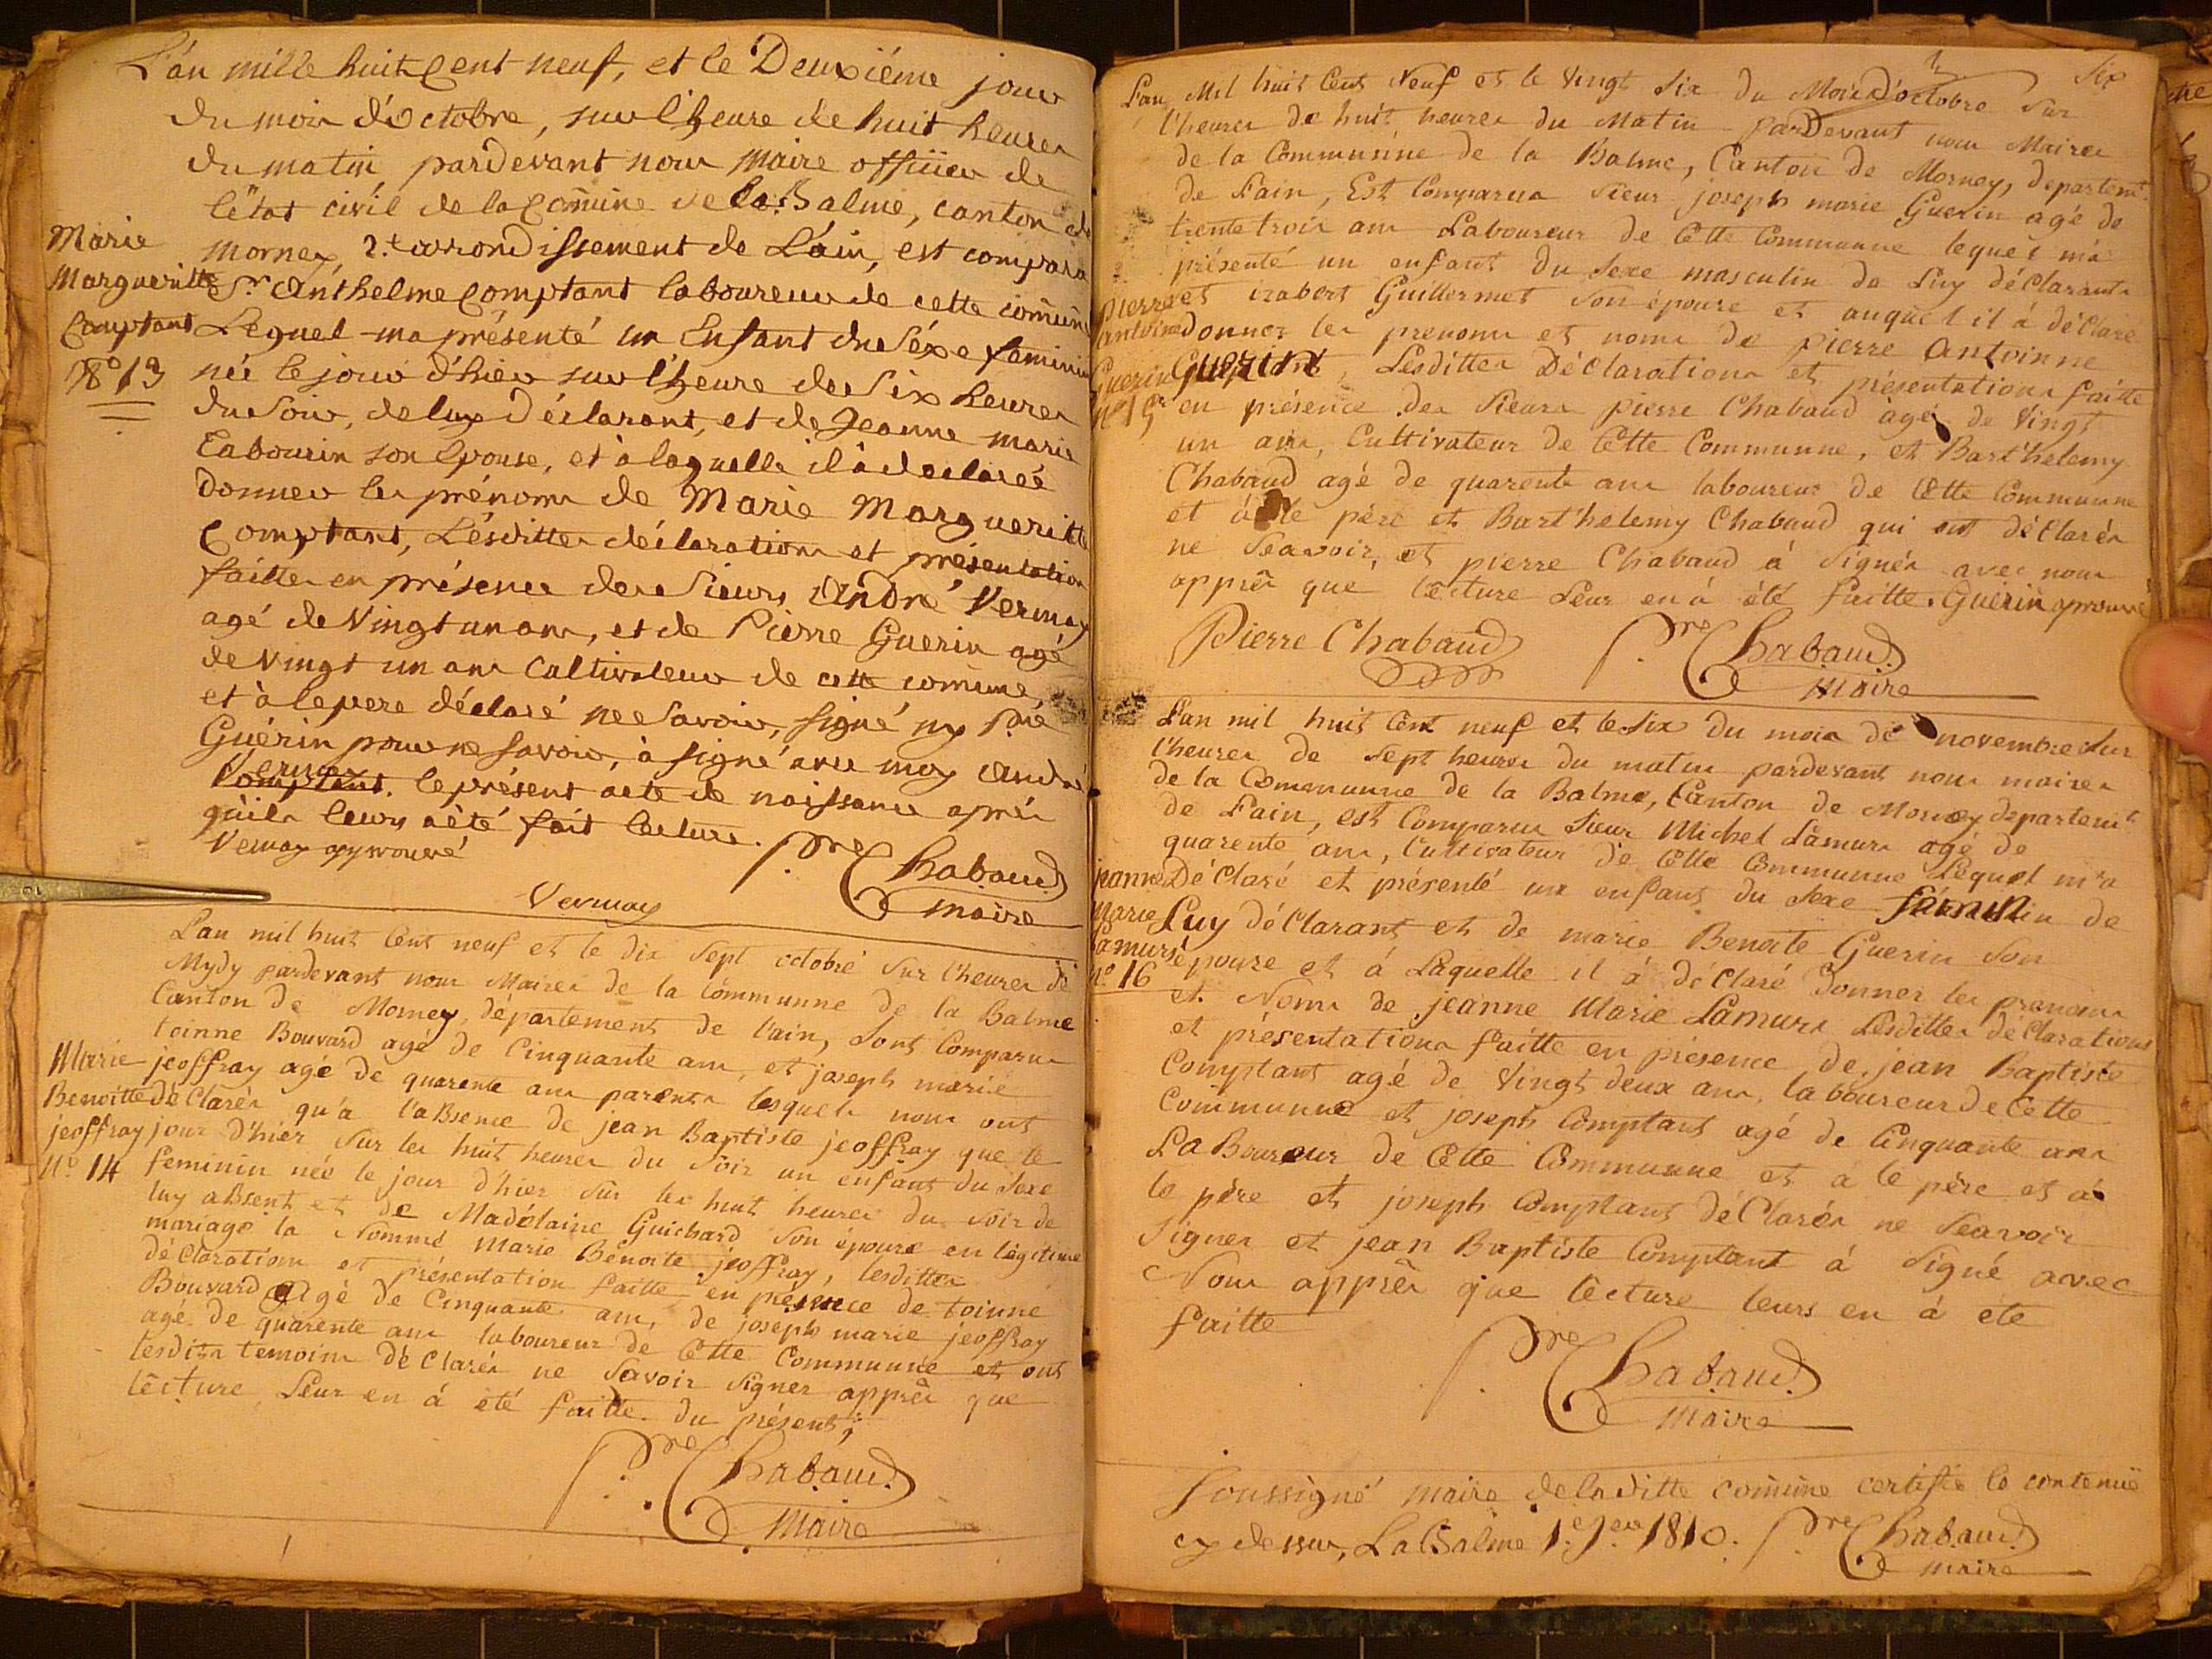 L'an mille huit Cent neuf, et le Deuxiéme jour
du mois d'octobre, sur l'heure de huit heures
du matin pardevant nous Maire officier de
l'état civil de la Comūne de la Balme, canton de
Mornex, 2.e arrondissement de L'ain, est comparu
Sr. Anthelme Comptant laboureur de cette comūne
Lequel ma présenté un Enfant du Séxe feminin
née le jour d'hier sur l'heure de Six heures
du Soir, de luy Déclarant, et de Jeanne Marie
Tabourin son Epouse, et à laquelle il à declareé
donner les prénoms de Marie Margueritte
Comptant, Lésdittes déclaration et présentation
faittes en présence des Sieurs André Vernay
agé de Vingt un ans, et de Pierre Guerin agé
de Vingt un ans Cultivateur de cette comūne
et à le pere déclaré ne Savoir, Signé ny
Guérin pour ne Savoir, à Signé avec moy André
Vernay
Comptant. le présent acte de naissance aprés
qu'ils leurs à été fait lecture.
Vernay approuvé
Pre Chabaud
Vernay
Maire
Marie
Margueritte
Comptant
No 13
L'an mil huit Cent neuf et le dix Sept octobre Sur l'heures de
Mydy pardevant nous Maires de la Communne de la Balme
Canton de Mornay, département de l'ain, Sont Comparus
toinne Bouvard agé de Cinquante ans, et joseph marie
jeoffray agé de quarente ans parents lesquels nous ont
déClarés qu'a l'aBsence de jean Baptiste jeoffray que le
jour d'hier Sur les huit heures du Soir un enfant du Sexe
feminin née le jour d'hier Sur les huit heures du Soir de
luy aBsent et de Madélaine Guichard Son épouse en légitime
mariage la Nommé Marie Bénoite jeoffray, lesdittes
déClaration et présentation faitte en présence de toinne
Bouvard agé de Cinquante ans, de joseph marie jeoffray
agé de quarente ans laboureur de Cette Communne et ont
lesdits temoins déClarés ne Savoir Signer apprés que
lécture Leur en á été faitte du présent;
Pre Chabaud
Maire
Marie
Benoitte
jeoffray
No. 14
Six
L'an Mil huit Cent Neuf et le Vingt Six du Mois d'octobre Sur
l'heures de huit heures du Matin pardevant nous Maires
de la Communne de la Balme, Canton de Mornay, departemt
de l'ain, Est Comparus Sieur joseph marie Guerin agé de
trente trois ans Laboureur de Cette Communne lequel m'á
présenté un enfant du Sexe masculin de Luy déClarants
et izabert Guillermet Son épouse et auquel il á déClaré
donner les prenoms et noms de pierre Antoinne
Guerin, Lesdittes DéClarations et présentations faitte
en présence des Sieurs pierre Chabaud agé de Vingt
un ans, Cultivateur de Cette Communne, et Bart'helemy
Chabaud agé de quarente ans laboureur de Cette Communne
et á le pére et Bart'helemy Chabaud qui ont déClarés
ne Seavoir, et pierre Chabaud á Signér avec nous
apprés que lécture Leur en á été faitte. Guerin aprouvé
Pierre Chabaud
Pre Chabaud
Maire
Pierre
Antoine
Guerin
No 15
L'an mil huit Cent neuf et le Six du mois de novembre Sur
l'heures de Sept heures du matin pardevant nous maires
de la Communne de la Balme, Canton de Mornay departemt
de l'ain, est Comparus Sieur Michel Lamure agé de
quarente ans, Cultivateur de Cette Communne Lequel m'a
DéClaré et présenté un enfant du Sexe féminin de
Luy déClarant et de marie Benoite Guerin Son
épouse et á Laquelle il á déClaré Donner les prenoms
et Noms de jeanne Marie Lamure Lesdittes déClarations
et présentations faitte en présence de jean Baptiste
Comptant agé de Vingt deux ans, laboureur de Cette
Communne et joseph Comptant agé de Cinquante ans
LaBoureur de Cette Communne et a le pére et á
le pére et joseph Comptant déClarés ne Seavoir
Signer et jean Baptiste Comptant á Signé avec
Nous apprés que lécture leurs en á été
faitte
Pre Chabaud
Maire
jeanne
Marie
Lamure
No. 16
Soussigné maire de la ditte comūne certifie le contenüe
cy dessus, La Balme 1er Jer 1810. Pre Chabaud
Maire